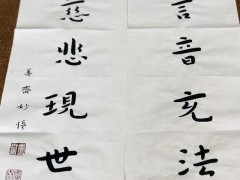 言音充法
慈悲現世
善齋妙悟